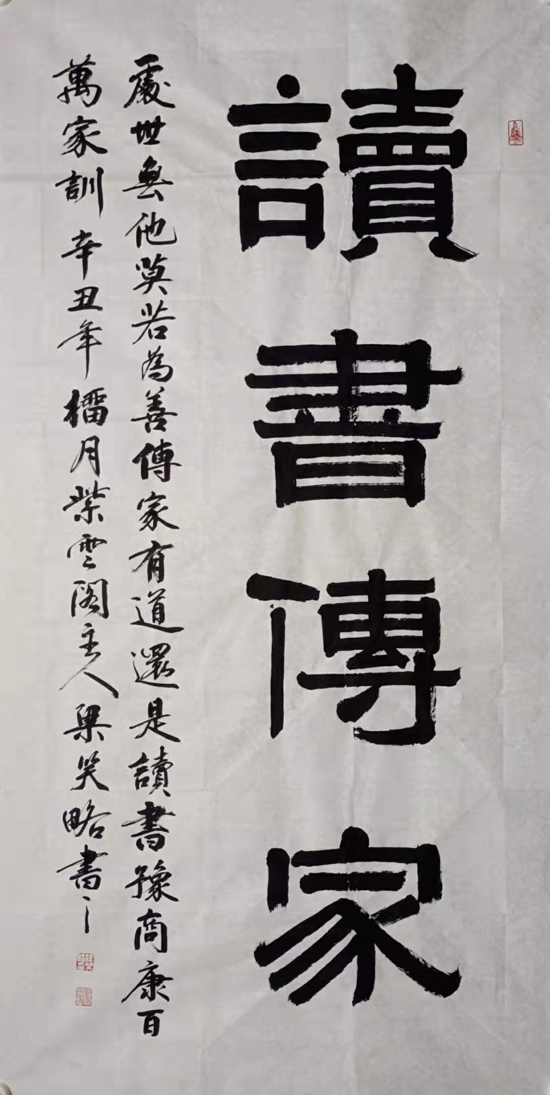 讀書傳家
處世無他莫若為善傳家有道還是讀書豫商康百
萬家訓 辛丑年榴月紫雲閣主人梁笑略書之